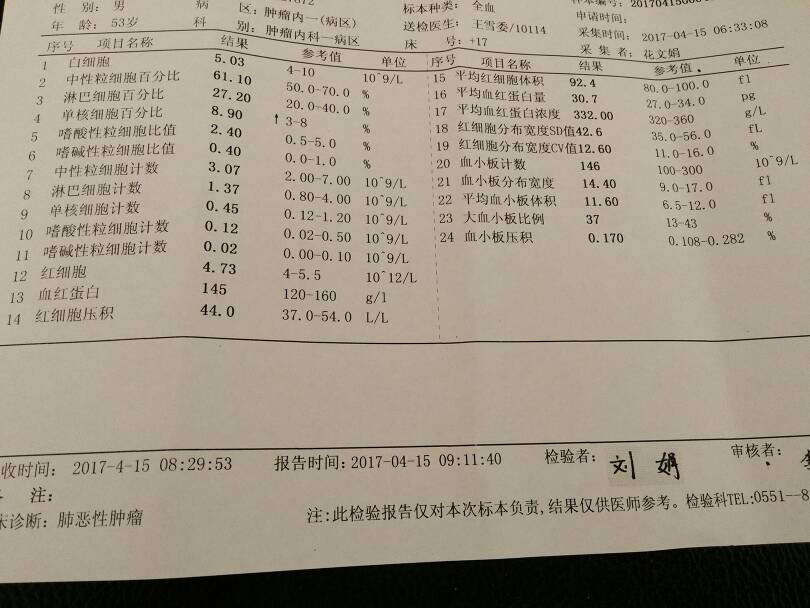 性 别: 男 病 区: 肿瘤内一(病区) 标本种类: 全血
申请时间:
年 龄: 53岁 科 别: 肿瘤内科一病区 送检医生: 王雪委/10114 采集时间: 2017-04-15 06:33:08
床 号: +17 采 集 者: 花文娟
序号 项目名称 结果 参考值 单位 序号 项目名称 结果 参考值 单位
1 白细胞 5.03 4-10 10^9/L 15 平均红细胞体积 92.4 80.0-100.0 fl
2 中性粒细胞百分比 61.10 50.0-70.0 % 16 平均血红蛋白量 30.7 27.0-34.0 pg
3 淋巴细胞百分比 27.20 20.0-40.0 % 17 平均血红蛋白浓度 332.00 320-360 g/L
4 单核细胞百分比 8.90 ↑ 3-8 % 18 红细胞分布宽度SD值 42.6 35.0-56.0 fL
5 嗜酸性粒细胞比值 2.40 0.5-5.0 % 19 红细胞分布宽度CV值 12.60 11.0-16.0 %
6 嗜碱性粒细胞比值 0.40 0.0-1.0 % 20 血小板计数 146 100-300 10^9/L
7 中性粒细胞计数 3.07 2.00-7.00 10^9/L 21 血小板分布宽度 14.40 9.0-17.0 fl
8 淋巴细胞计数 1.37 0.80-4.00 10^9/L 22 平均血小板体积 11.60 6.5-12.0 fl
9 单核细胞计数 0.45 0.12-1.20 10^9/L 23 大血小板比例 37 13-43 %
10 嗜酸性粒细胞计数 0.12 0.02-0.50 10^9/L 24 血小板压积 0.170 0.108-0.282 %
11 嗜碱性粒细胞计数 0.02 0.00-0.10 10^9/L
12 红细胞 4.73 4-5.5 10^12/L
13 血红蛋白 145 120-160 g/l
14 红细胞压积 44.0 37.0-54.0 L/L
收时间: 2017-4-15 08:29:53 报告时间: 2017-04-15 09:11:40 检验者: 刘娟 审核者:
注:
床诊断: 肺恶性肿瘤 注:此检验报告仅对本次标本负责,结果仅供医师参考。检验科TEL:0551--8